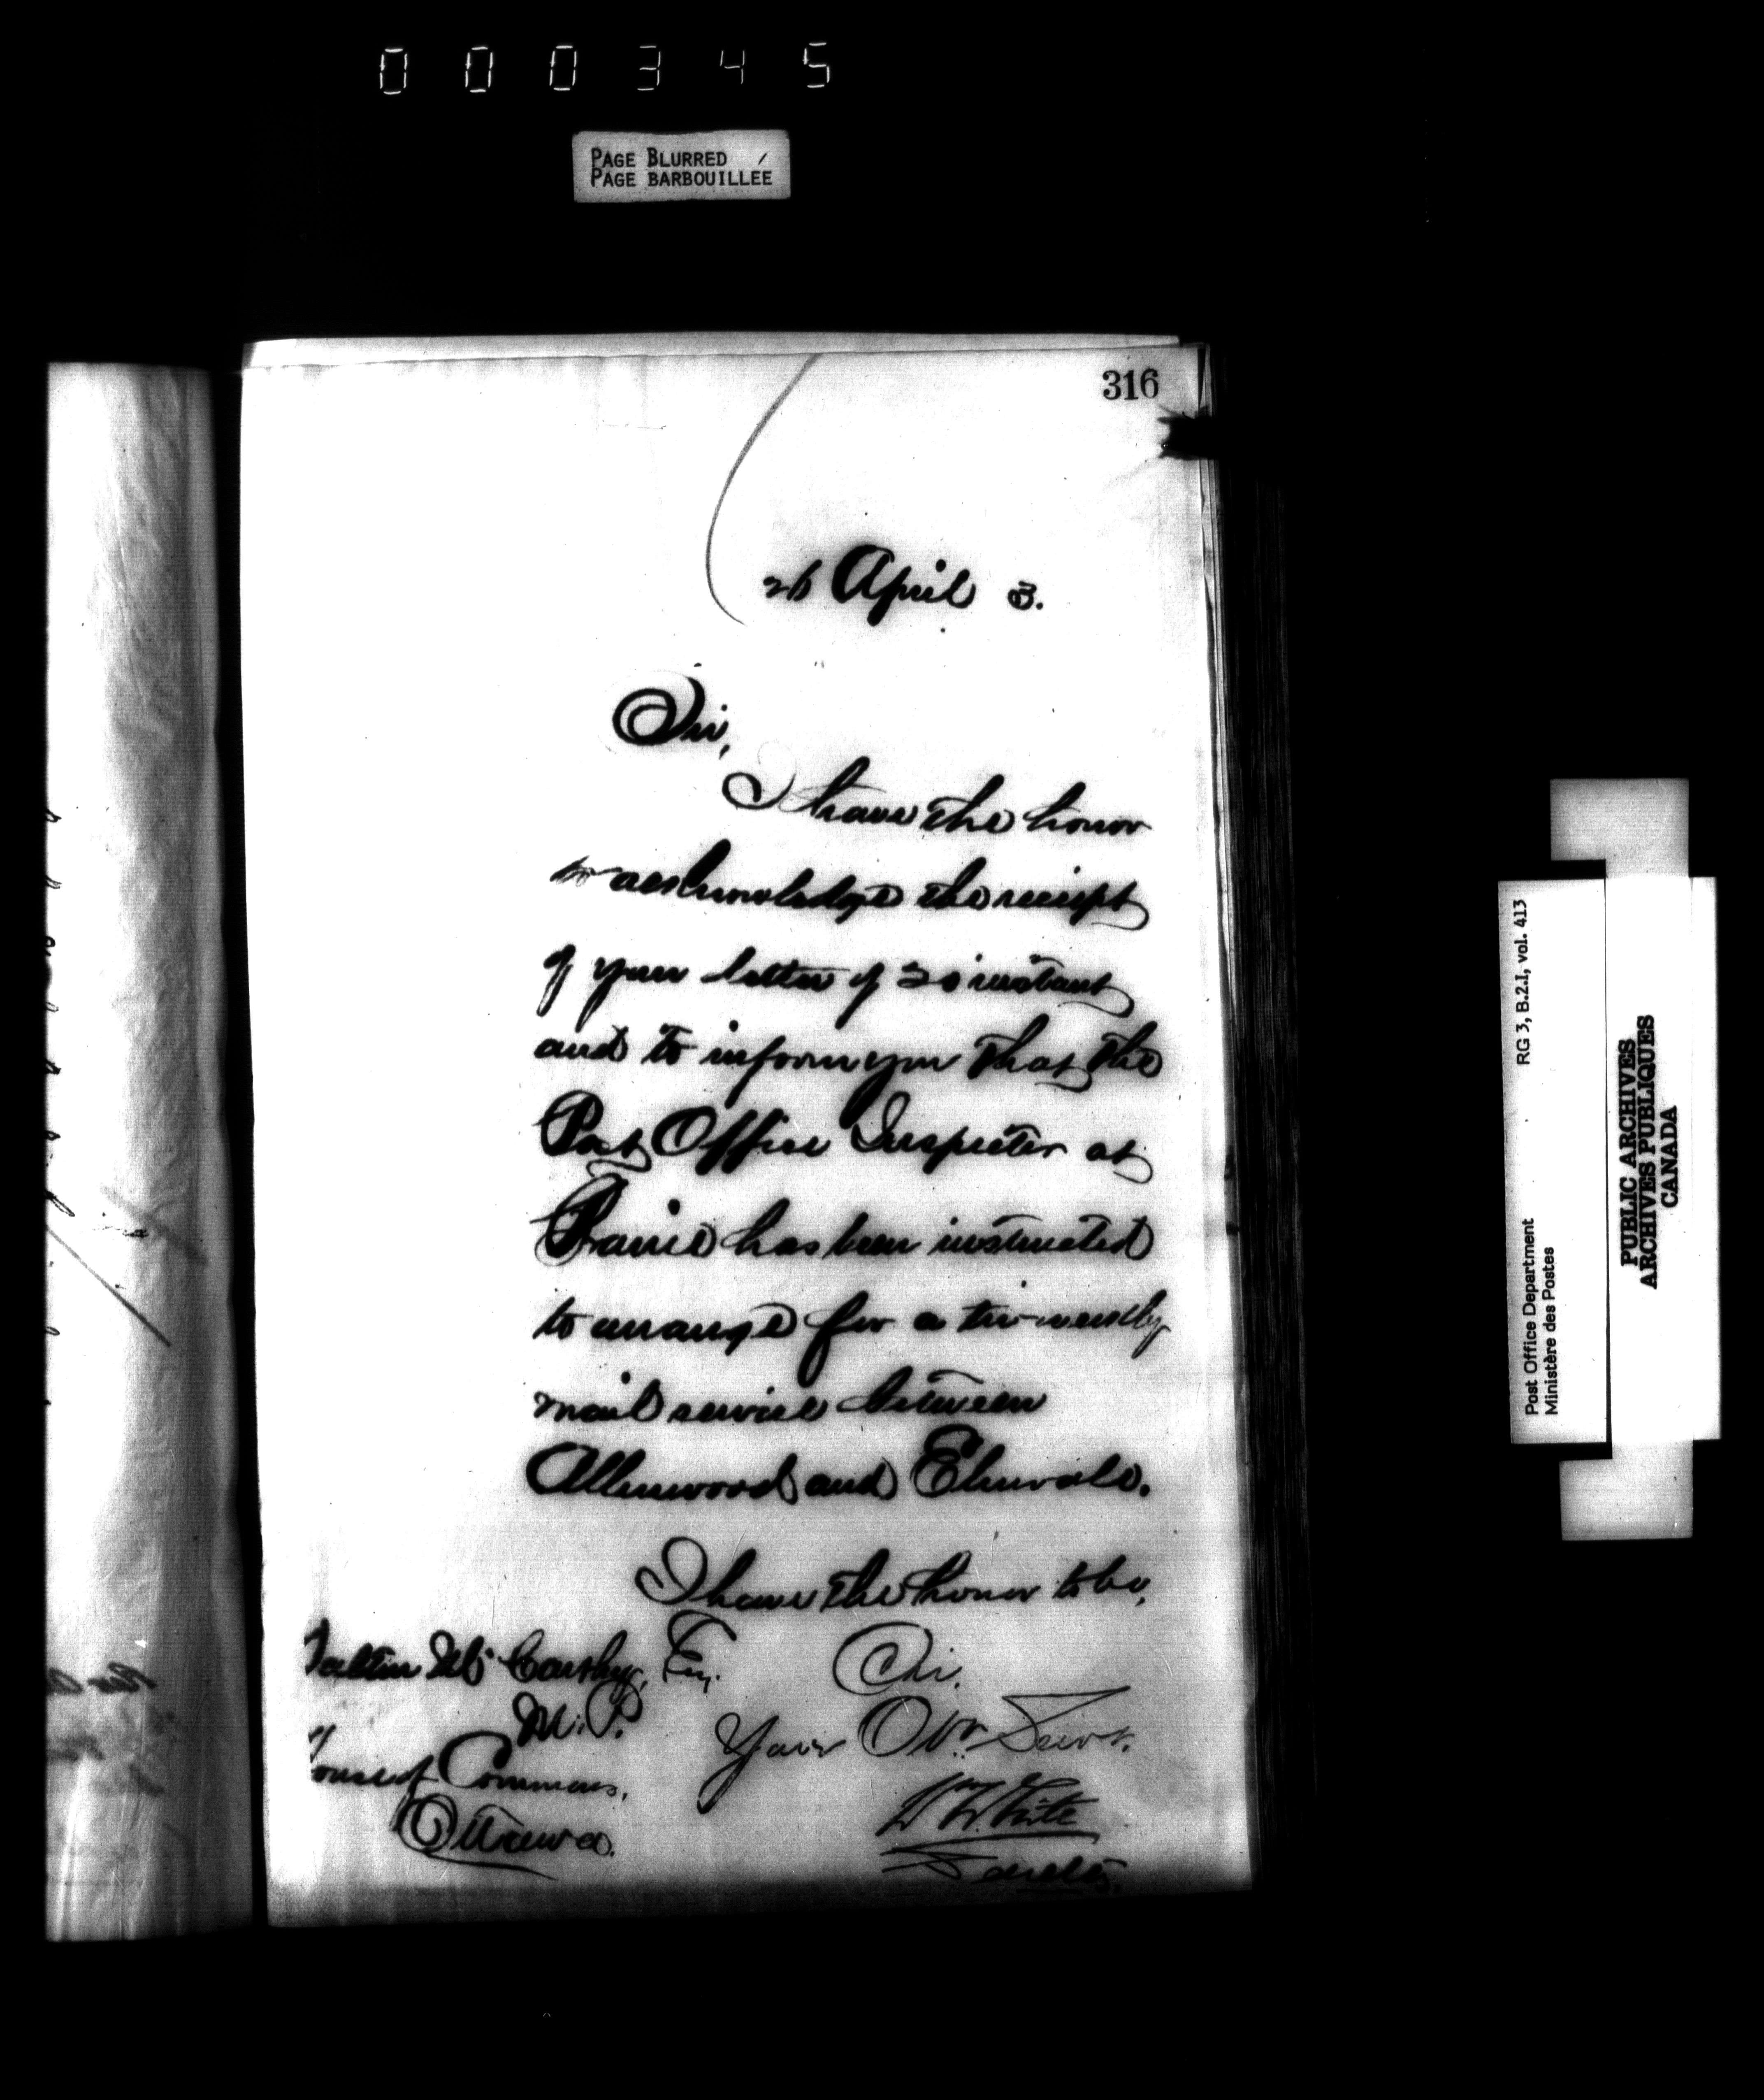 000345
PAGE BLURRED
PAGE BARBOUILLÉE
316
26 April 3.
Sir,
I have the honor
to acknowledge the receipt
of your letter of 20 instant
and to inform you that the
Post Office Inspector at
Barrie has been instructed
to arrange for a tri-weekly
mail service between
Allenwood and Elmvale.
I have the honor to be,
Dalton McCarthy, Esq.
M.P.
House of Commons,
Ottawa.
Sir.
Your Obt. Servt.
W White
Secretary.
RG 3, B.2.I, vol. 413
Post Office Department
Ministère des Postes
PUBLIC ARCHIVES
ARCHIVES PUBLIQUES
CANADA